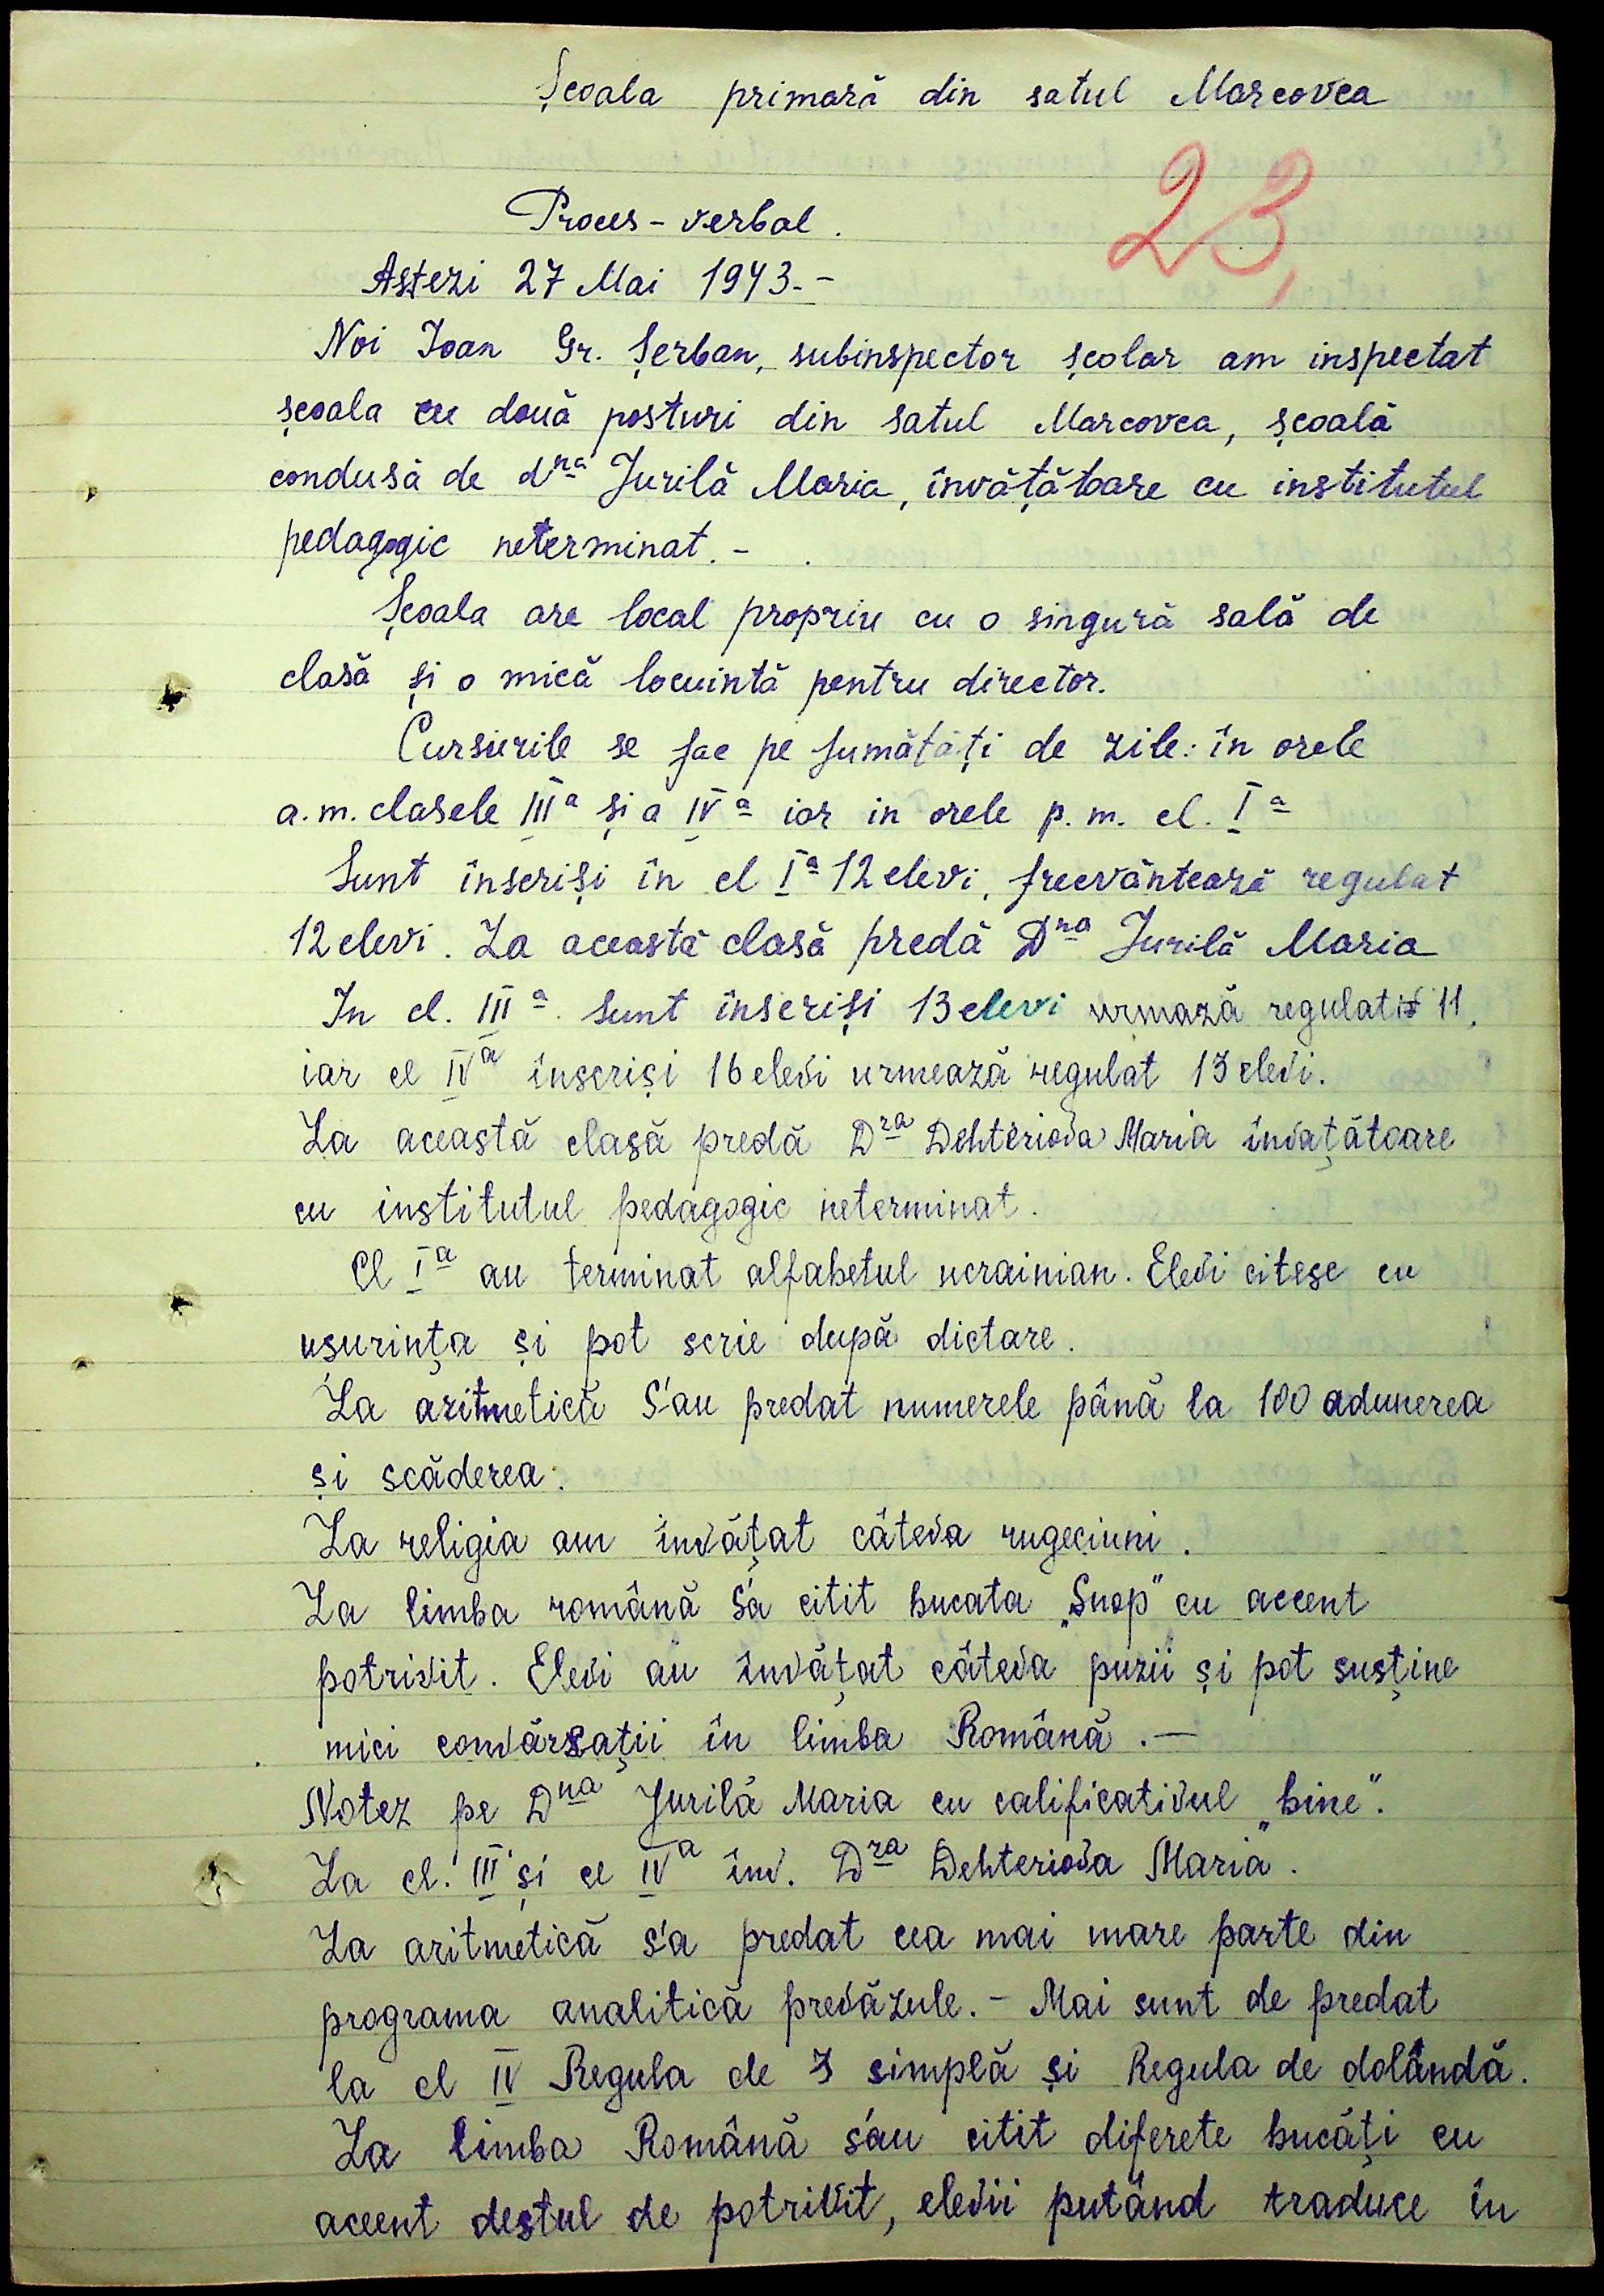 Școala primară din satul Marcovca
23,
Proces-verbal.
Astezi 27 Mai 1943.-
Noi Ioan Gr. Șerban, subinspector școlar am inspectat
școala cu două posturi din satul Marcovca, școală
condusă de dna Jurilă Maria, învățătoare cu institutul
pedagogic neterminat.-
Școala are local propriu cu o singură sală de
clasă și o mică locuintă pentru director.
Cursurile se fac pe jumătăți de zile: în orele
a.m. clasele IIIa și a IVa iar in orele p.m. cl. Ia
Sunt înscriși în cl Ia 12 elevi, frecvântează regulat
12 elevi. La aceastâ clasă predă Dna Jurilă Maria
In cl. IIIa. sunt înscriși 13 elevi urmază regulat 11,
iar cl IVa înscriși 16 elevi urmează regulat 13 elevi.
La această clasă predă Dra Dehteriova Maria învațătoare
cu institutul pedagogic neterminat.
Cl Ia au terminat alfabetul ucrainian. Elevi citesc cu
ușurința și pot scrie după dictare.
La aritmetică S'au predat numerele până la 100 adunerea
și scăderea.
La religia am învățat câteva rugeciuni.
La limba română s'a citit bucata „Snop" cu accent
potrivit. Elevi au învățat câteva puzii și pot susține
mici convărsații în limba Română.—
Notez pe Dna Jurilă Maria cu calificativul „bine".
La cl. III și cl IVa înv. Dra Dehteriova Maria.
La aritmetică s'a predat cea mai mare parte din
programa analitică prevăzule.- Mai sunt de predat
la cl IV Regula de 3 simplă și Regula de dolândă.
La limba Română s'au citit diferete bucăți cu
accent destul de potrivit, elevii putând traduce în